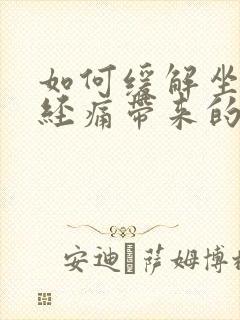 如何缓解坐
经痛带来的
安迪·萨姆博